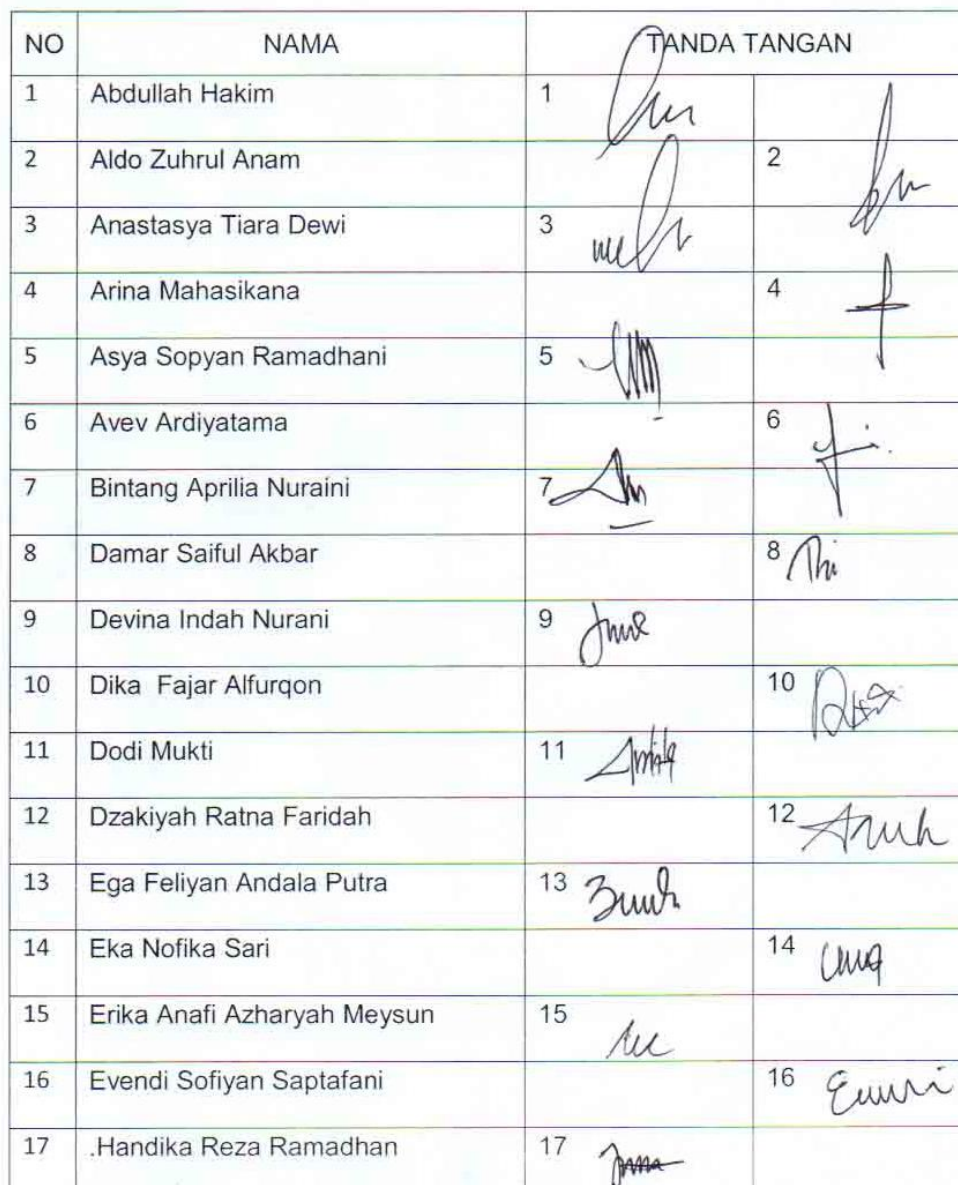 NO NAMA TANDA TANGAN
1 Abdullah Hakim 1
2 Aldo Zuhrul Anam 2
3 Anastasya Tiara Dewi 3
4 Arina Mahasikana 4
5 Asya Sopyan Ramadhani 5
6 Avev Ardiyatama 6
7 Bintang Aprilia Nuraini 7
8 Damar Saiful Akbar 8
9 Devina Indah Nurani 9
10 Dika Fajar Alfurqon 10
11 Dodi Mukti 11
12 Dzakiyah Ratna Faridah 12
13 Ega Feliyan Andala Putra 13
14 Eka Nofika Sari 14
15 Erika Anafi Azharyah Meysun 15
16 Evendi Sofiyan Saptafani 16
17 .Handika Reza Ramadhan 17